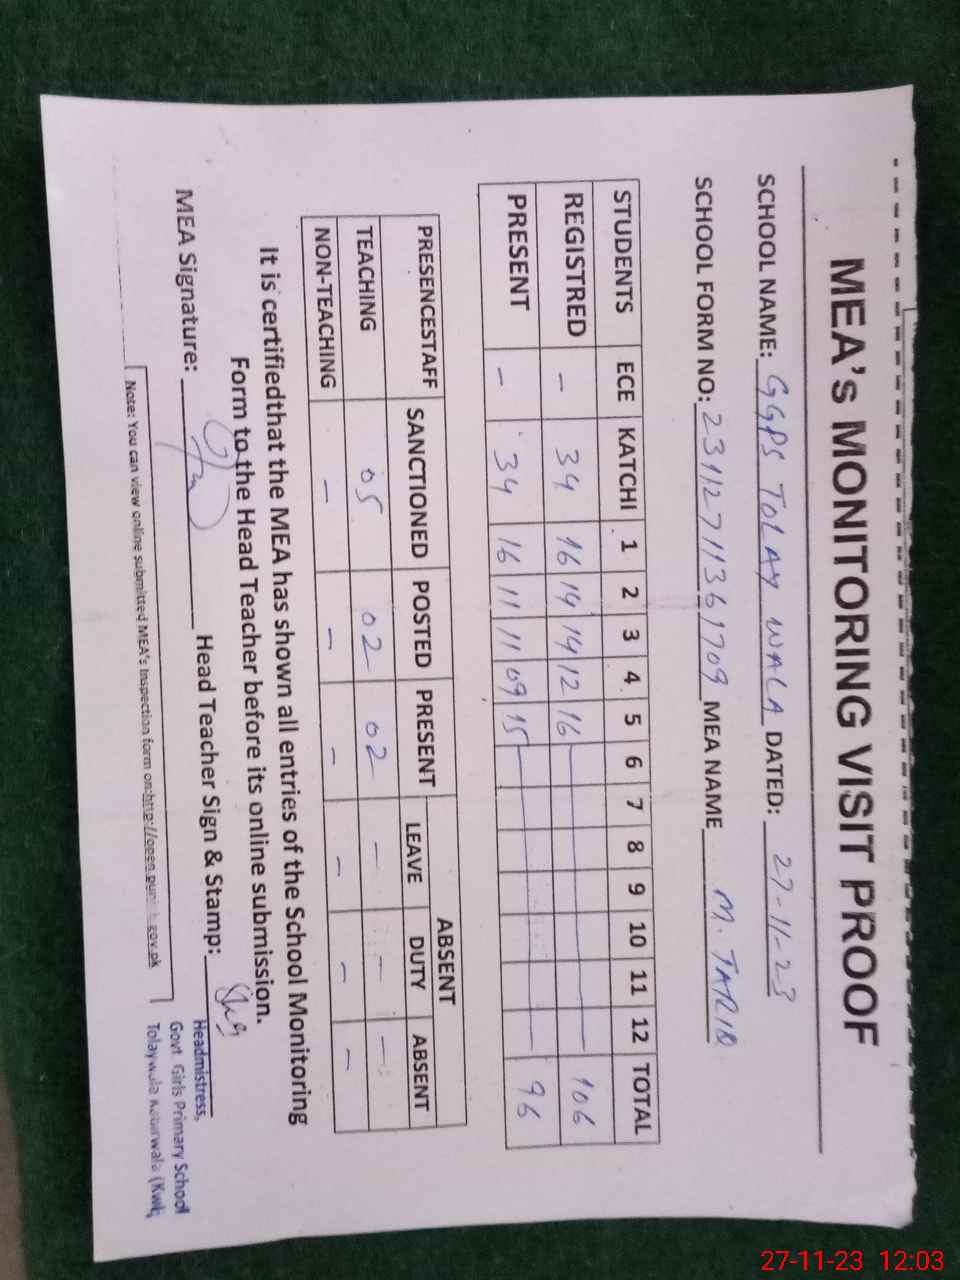 MEA's MONITORING VISIT PROOF
SCHOOL NAME: GGPS TOLAY WALA DATED: 27-11-23
SCHOOL FORM NO: 23112711361709 MEA NAME M. TARIQ
STUDENTS ECE KATCHI 1 2 3 4 5 6 7 8 9 10 11 12 TOTAL
REGISTRED - 34 16 14 14 12 16 106
PRESENT - 34 16 11 11 09 15 96
PRESENCESTAFF SANCTIONED POSTED PRESENT ABSENT
LEAVE DUTY ABSENT
TEACHING 05 02 02 - - -
NON-TEACHING - - - - - -
It is certifiedthat the MEA has shown all entries of the School Monitoring
Form to the Head Teacher before its online submission.
MEA Signature: Head Teacher Sign & Stamp:
Headmistress,
Govt Girls Primary School
Tolaywala Kabirwala
Note: You can view online submitted MEA's Inspection form on:http://open.punjab.gov.pk
27-11-23 12:03